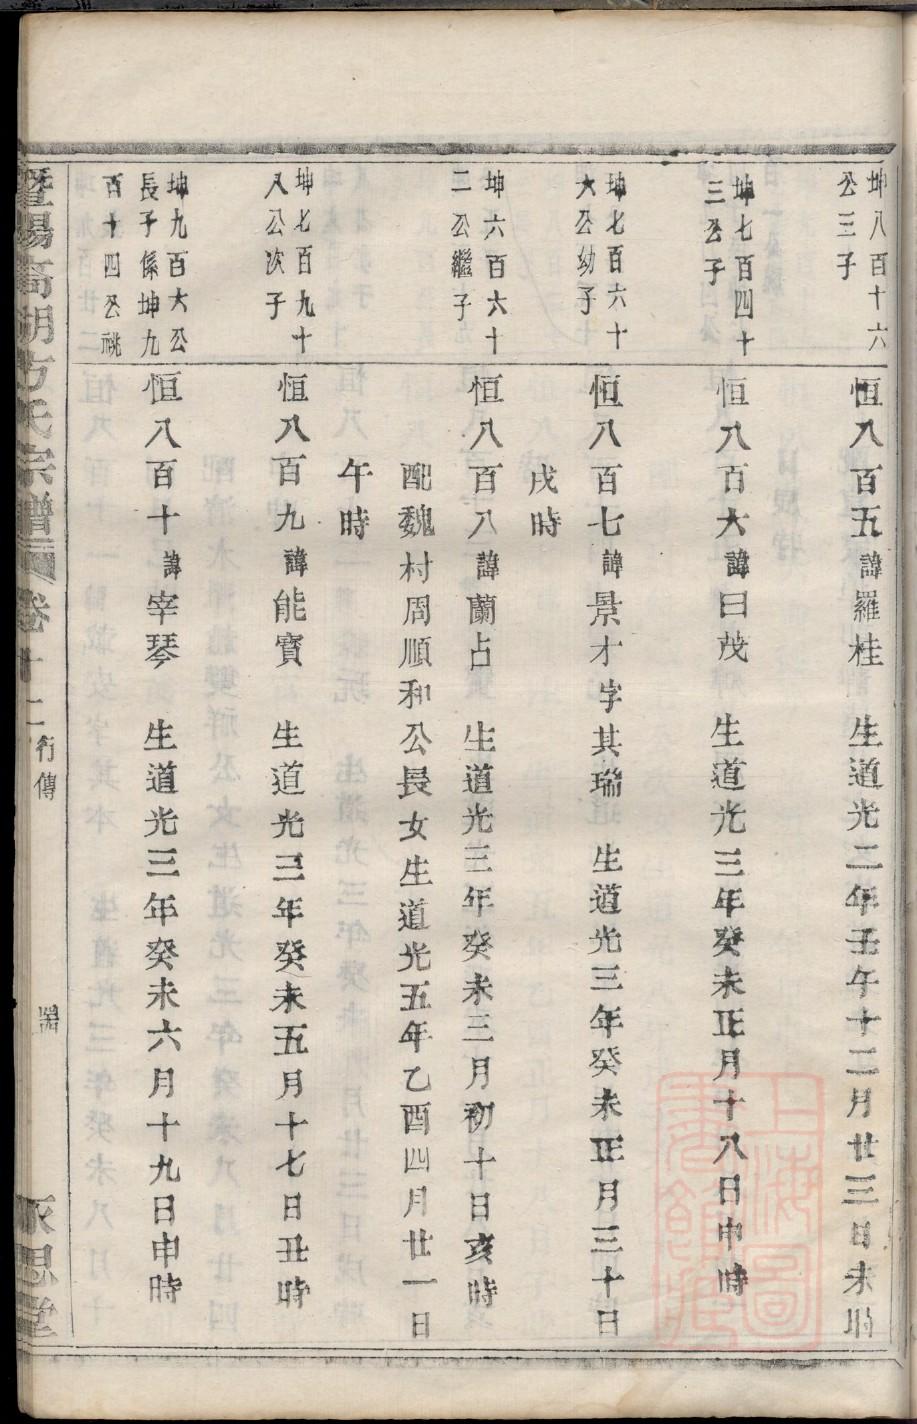 坤八百十六
公三子
恒八百五諱羅桂 生道光二年壬午十二月廿三日未時
坤七百四十
三公子
恒八百六諱曰茂 生道光三年癸未正月十八日申時
坤七百六十
六公幼子
恒八百七諱景才字其瑞 生道光三年癸未正月三十日
戌時
坤六百六十
二公繼子
恒八百八諱蘭占 生道光三年癸未三月初十日亥時
配魏村周順和公長女生道光五年乙酉四月廿一日
午時
坤七百九十
八公次子
恒八百九諱能寶 生道光三年癸未五月十七日丑時
坤九百六公
長子係坤九
百十四公祧
恒八百十諱宰琴 生道光三年癸未六月十九日申時
暨陽高湖方氏宗譜 卷十二 行傳
永思堂
上海圖書館藏